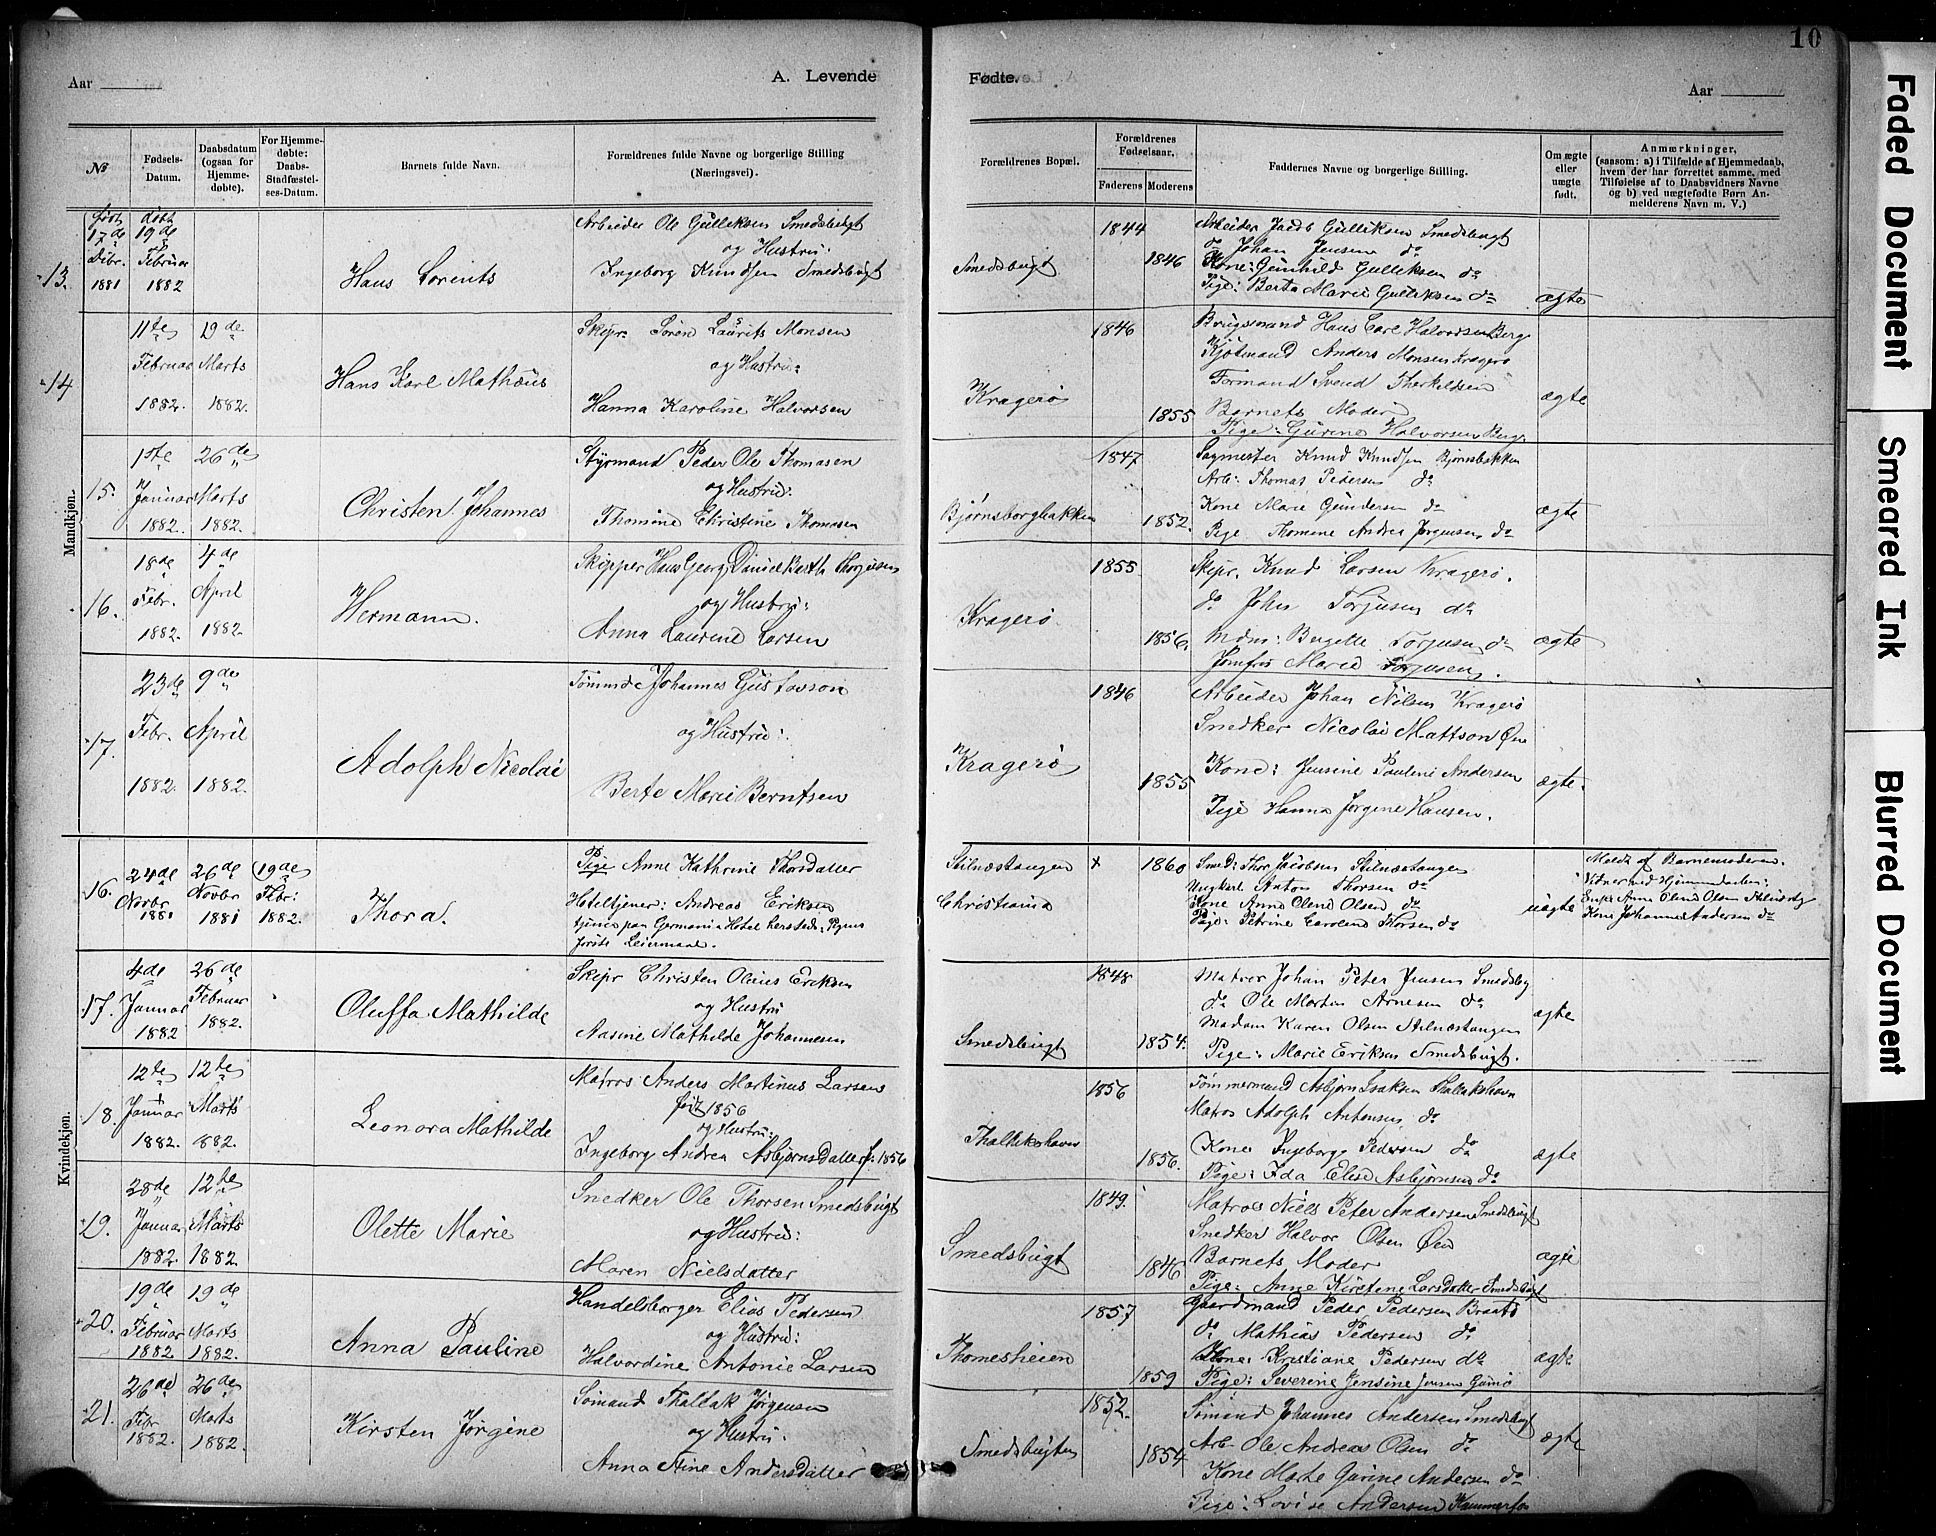 10
Aar
A. Levende
Fødte.
Aar
№
Fødsels-
Datum.
Daabsdatum
(ogsaa for
Hjemme-
døbte).
For Hjemme-
døbte:
Daabs-
Stadfæstel-
ses-Datum.
Barnets fulde Navn.
Forældrenes fulde Navne og borgerlige Stilling
(Næringsvei).
Forældrenes Bopæl.
Forældrenes
Fødselsaar.
Faderens
Moderens
Faddernes Navne og borgerlige Stilling.
Om ægte
eller
uægte
født.
Anmærkninger,
(saasom: a) i Tilfælde af Hjemmedaab,
hvem der har forrettet samme, med
Tilføielse af to Daabsvidners Navne
og b) ved uægtefødte Børn An-
melderens Navn m. V.)
Mandkjøn.
13.
født
17de
Dbr.
1881
døbt
19de
Februar
1882
Hans Lorents
Arbeider Ole Gulliksen Smedsbugt
og Hustru:
Ingeborg Knudsen Smedsbugt
Smedsbugt
1844
1846
Arbeider Jacob Gulliksen Smedsbugt
do Johan Jensen do
Kone: Gunhild Gulliksen do
Pige: Berta Marie Gulliksen do
ægte
14
11te
Februar
1882.
19de
Marts
1882.
Hans Karl Mathæus
Skipr. Søren Laurits Monsen
og Hustru:
Hanna Karoline Halvorsen
Kragerø
1846
1855
Brugsmand Hans Carl Halvorsen Berg
Kjøbmand Anders Monsen Kragerø
Formand Svend Therkildsen
Barnets Moder
Pige: Gurine Halvorsen Berg.
ægte
15.
1ste
Januar
1882.
26de
Marts
1882.
Christen Johannes
Styrmand Peder Ole Thomasen
og Hustru:
Thomine Christine Thomasen
Bjørnsborgbakken
1847
1852.
Sagmester Knud Knudsen Bjørnsbakken
Arb: Thomas Pedersen do
Kone Marie Gundersen do
Pige Thomine Andrea Jørgensen do
ægte
16.
18de
Febr.
1882.
4de
April
1882.
Hermann.
Skipper Hans Georg Daniel Barth Thorjusen
og Hustru:
Anna Laurine Larsen
Kragerø.
1855.
1856.
Skipr. Knud Larsen Kragerø.
do John Torjusen do
Mdm: Bergitte Torjusen do
Jomfru Marie Torjusen.
ægte
17.
23de
Febr.
1882.
9de
April
1882.
Adolph Nicolai
Tømmd Johannes Gustavson
og Hustru:
Berte Marie Berntsen
Kragerø
1846
1855
Arbeider Johan Nilsen Kragerø
Snedker Nicolai Mattson Øen
Kone: Jensine Pauline Andersen
Pige Hanna Jørgine Hansen.
ægte.
Kvindekjøn.
16.
24de
Novbr
1881
26de
Novbr
1881
(19de
Febr:
1882.
Thora.
Pige Anne Kathrine Thorsdatter
Hoteltjener: Andreas Eriksen
tjener paa Germania Hotel hersteds: Pigens
første Leiermaal.
Stilnæstangen
Christiania
x
1860
Smed: Thor Jacobsen Stilnæstangen
Ungkarl Anton Thorsen do
Kone Anne Olene Olsen do
Pige: Petrine Caroline Thorsen do
uægte
Meldt af Barnemoderen.
Vitner ved Hjemmedaaben:
Enke Anne Olene Olsen Stilnæstg
Kone Johanne Andersen do
17.
4de
Januar
1882
26de
Februar
1882.
Oluffa Mathilde
Skipr Christen Olaus Eriksen
og Hustru
Nasine Mathilde Johannesen
Smedsbugt
1848
1854.
Matros Johan Peter Jensen Smedsby
do Ole Morten Arnesen do
Madam Karen Olsen Stilnæstangen
Pige: Marie Eriksen Smedsbugt.
ægte
18.
12te
Januar
1882.
12te
Marts
882.
Leonora Mathilde
Matros Anders Martinus Larsen
født 1856
og Hustru:
Ingeborg Andrea Asbjørnsdatter f: 1856
Thallakshavn
1856
1856.
Tømmermand Asbjørn Isaksen Thallakshavn
Matros Adolph Antonsen, do
Kone Ingeborg Pedersen do
Pige: Ida Elise Asbjørnsen do
ægte
19.
28de
Januar
1882
12te
Marts
1882.
Olette Marie
Snedker Ole Thorsen Smedsbugt
og Hustru:
Maren Nielsdatter
Smedsbugt
1849.
1846
Matros Niels Peter Andersen Smedsbugt
Snedker Halvor Olsen Øen
Barnets Moder
Pige: Anne Kirstine Larsdatter Smedsbugt
ægte
20.
19de
Februar
1882
19de
Marts
1882.
Anna Pauline
Handelsborger Elias Pedersen
og Hustru:
Halvordine Antonie Larsen
Thomesheien
1857
1859
Gaardmand Peder Pedersen Braatø
do Mathias Pedersen do
Kone: Kristiane Pedersen do
Pige: Severine Jensine Jensen Gumø
ægte
21.
26de
Febr
1882.
26de
Marts
1882.
Kirsten Jørgine
Sømand Thallak Jørgensen
og Hustru:
Anna Stine Andersdatter
Smedsbugten
1852.
1854
Sømand Johannes Andersen Smedsbugt
Arb. Ole Andreas Olsen do
Kone Marte Gurine Andersen do
Pige: Lovise Andersen Kammerfos
ægte
Faded Document
Smeared Ink
Blurred Document